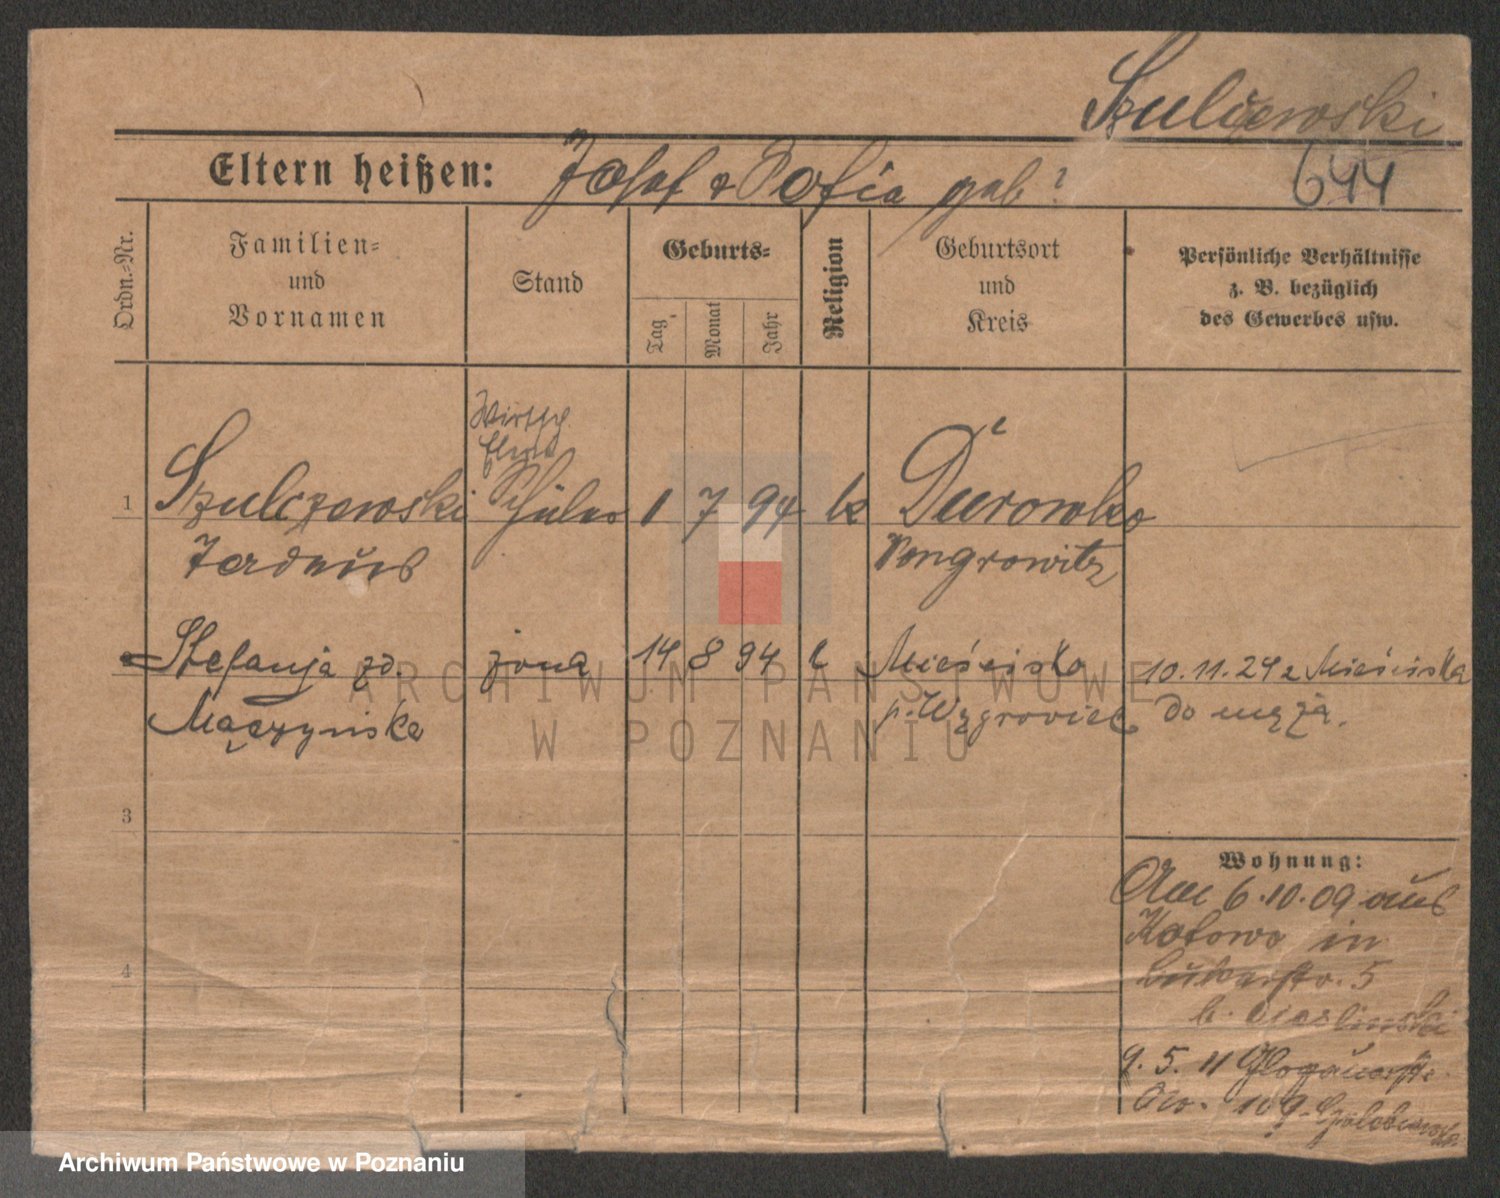 Szulczewski
644
Eltern heißen: Josef & Sofia geb ?
Ordn.=Nr.
Familien=
und
Vornamen
Stand
Geburts=
Tag
Monat
Jahr
Religion
Geburtsort
und
Kreis
Persönliche Verhältnisse
z. B. bezüglich
des Gewerbes usw.
Wirtsch
Eleve
1 Szulczewski Schüler 1 7 94 k Durowko
Tadeus Wongrowitz
Stefanja zd. żona 14 8 94 k Mieścisko 10.11.24 z Mieściska
Mączyńska p. Wągrowiec do męża.
3
4
Wohnung:
Am 6.10.09 aus
Kotowo in
Bukerstr. 5
b. Cieslinski
9. 5. 11 Glogauerstr.
No. 109
ARCHIWUM PAŃSTWOWE
W POZNANIU
Archiwum Państwowe w Poznaniu